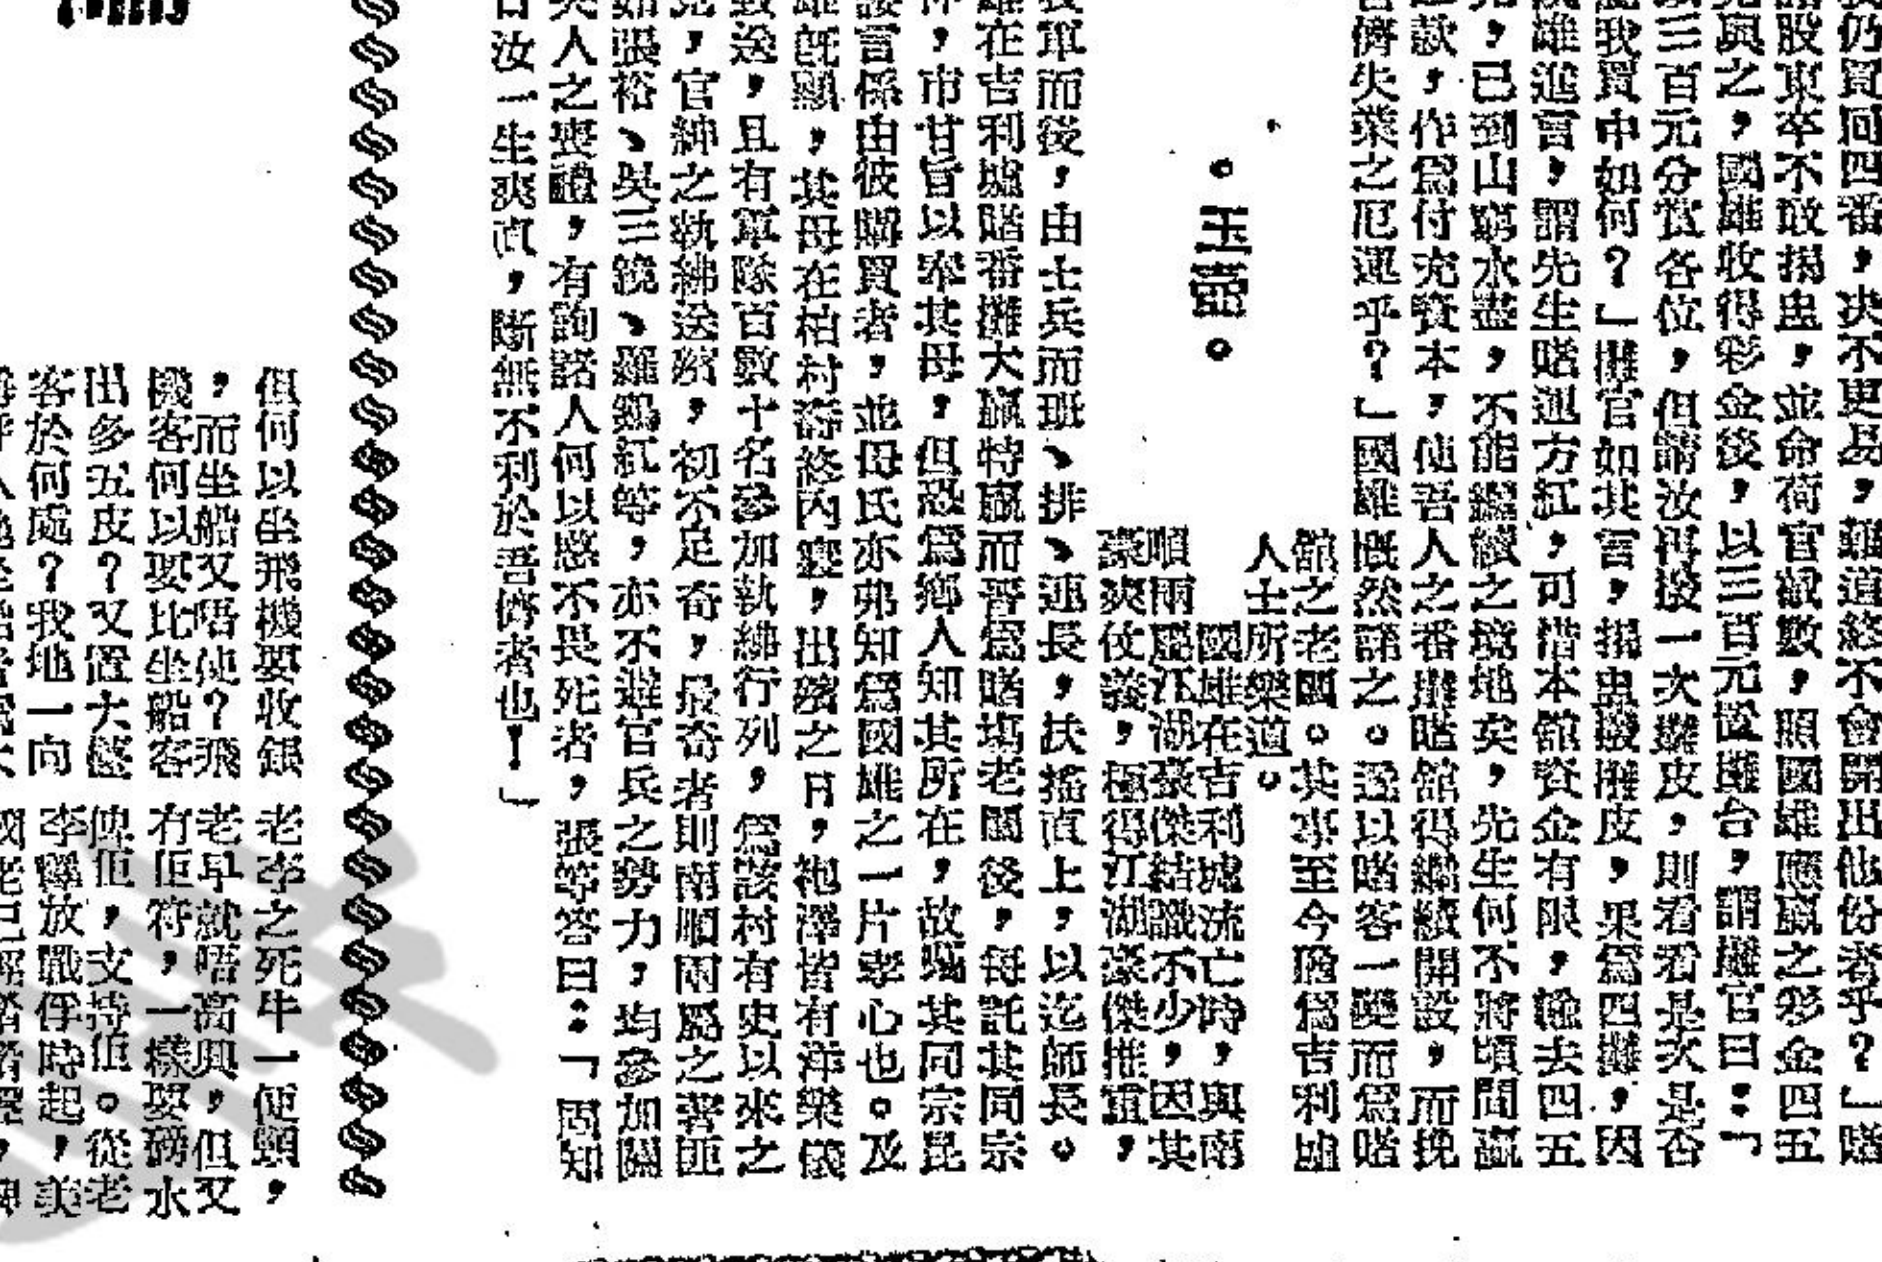 仍買回四番，決不更易，難道終不會開出他份者乎？」賭
股東卒不敢揭盅，並命荷官繳數，照國雄應贏之彩金四五
與之，國雄收得彩金後，以三百元置攤台，謂攤官曰：「
三百元分賞各位，但請汝再撥一次攤皮，則看看是次是否
我買中如何？」攤官如其言，揭盅撥攤皮，果爲四攤，因
雄進言，謂先生賭運方紅，可惜本館資金有限，輸去四五
，已到山窮水盡，不能繼續之境地矣，先生何不將頃間贏
款，作爲付充資本，使吾人之番攤賭館得繼續開設，而挽
儕失業之厄運乎？」國雄旣然諾之。遂以賭客一變而爲賭
館之老闆。其事至今膾爲吉利墟
人士所樂道。
。玉壺。
國雄在吉利墟流亡時，與南
順兩屬江湖豪傑結識不少，因其
豪爽仗義，極得江湖豪傑推重，
軍而後，由士兵而班、排、連長，扶搖直上，以迄師長。
在吉利墟賭番攤大贏特贏而晋爲賭場老闆後，每託其同宗
，市甘旨以奉其母，但恐爲鄉人知其所在，故囑其同宗昆
言係由彼購買者，並母氏亦弗知爲國雄之一片孝心也。及
旣顯，其母在柏村壽終內寢，出殯之日，袍澤皆有洋樂儀
送，且有軍隊百數十名參加執紼行列，爲該村有史以來之
，官紳之執紼送殯，初不足奇，最奇者則南順兩屬之著匪
張裕、吳三鏡、羅鷄紅等，亦不避官兵之勢力，均參加闔
人之喪禮，有詢諸人何以慜不畏死者，張等答曰：「固知
汝一生爽直，斷無不利於吾儕者也！」
但何以坐飛機要收銀
，而坐船又唔使？飛
機客何以要比坐船客
出多五皮？又置大艙
客於何處？我地一向
老李之死牛一便頸，
老早就唔高興，但又
有佢符，一樣要磅水
俾佢，支持佢。從老
李釋放戰俘時起，美